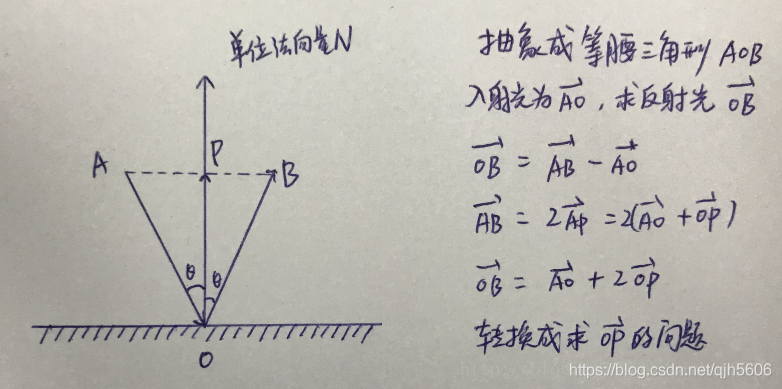 单位法向量N
A
P
B
θ
θ
O
抽象成等腰三角形AOB
入射光为AO，求反射光OB
OB = AB - AO
AB = 2AP = 2(AO + OP)
OB = AO + 2OP
转换成求OP的问题
https://blog.csdn.net/qjh5606